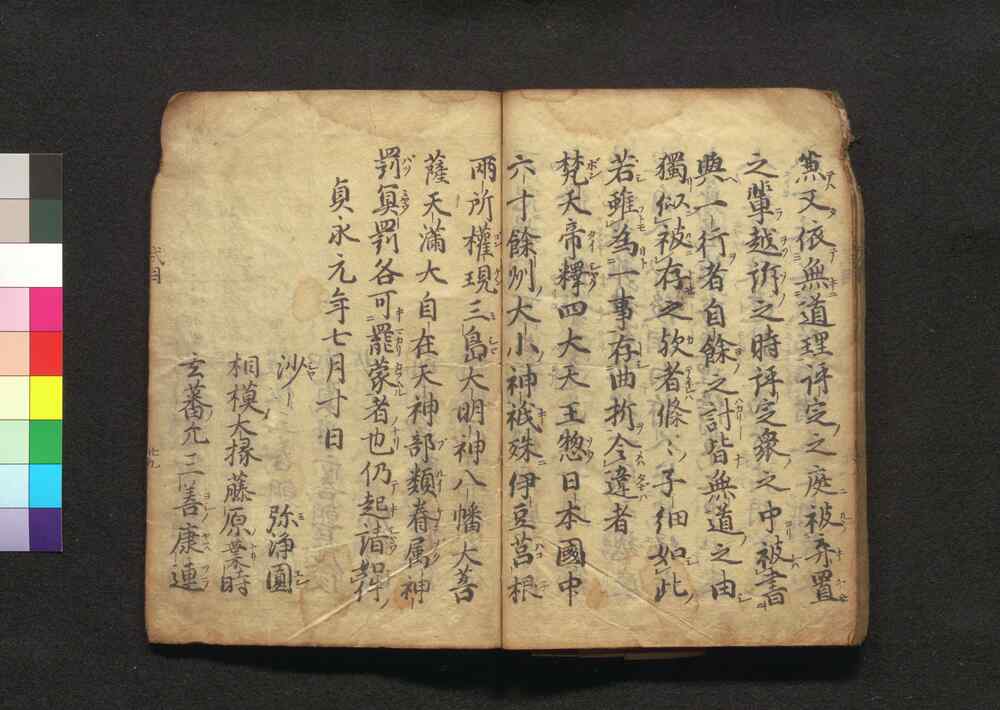 兼又依無道理評定之庭被弃置
之輩越訴之時評定衆之中被書
與一行者自餘之計皆無道之由
獨似被存之歟者條〻子細如此
若雖為一事存曲折令違者
梵天帝釋四大天王惣日本國中
六十餘州大小神祇殊伊豆莒根
兩所權現三島大明神八幡大菩
薩天滿大自在天神部類眷属神
罰冥罰各可罷蒙者也仍起請如件
貞永元年七月十日
沙〻弥浄圓
相模大掾藤原業時
玄蕃允三善康連
式目